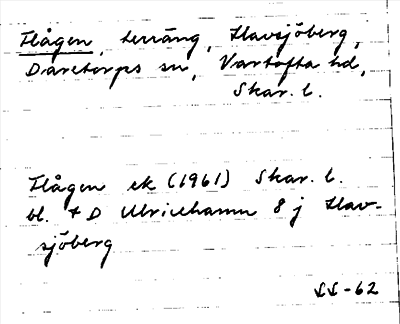 Hågen, terräng, Havsjöberg,
Daretorps sn, Vartofta hd,
Skar. l.
Hågen ek (1961) Skar. l.
bl. 7 D Ulricehamn 8 j Hav-
sjöberg
-62